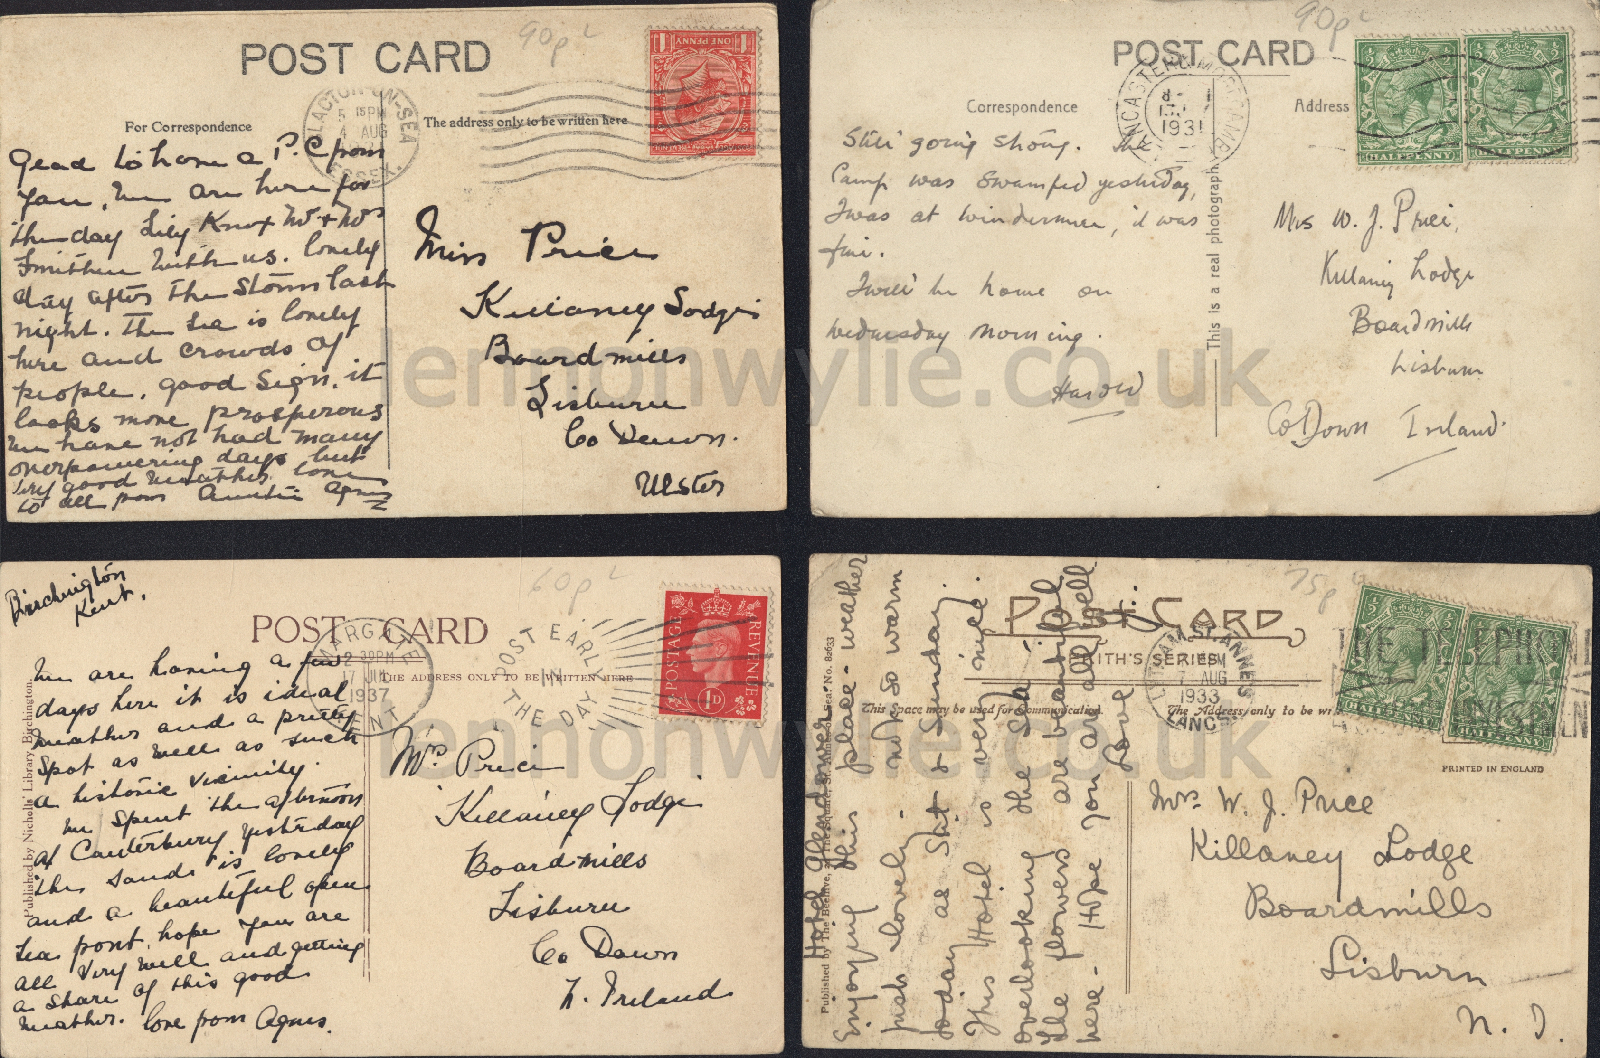 90p
POST CARD
ONE PENNY
CLACTON-ON-SEA
5 15PM
4 AUG
ESSEX
For Correspondence
The address only to be written here
Glad to have a P.C from
you, we are here for
the day Lily Knox Mr + Mrs
Smithen with us. lovely
day after the storm last
night. The Sea is lovely
here and crowds of
people, good sign, it
looks more prosperous
we have not had many
overpowering days but
very good weather. love
to all from Auntie Agnes
Miss Price
Killaney Lodge
Boardmills
Lisburn
Co Down.
Ulster
90p
POST CARD
LANCASTER & MORECAMBE
1931
HALFPENNY
HALFPENNY
Correspondence
Address
This is a real photograph
Still going strong. The
Camp was swamped yesterday,
I was at Windermere, it was
fine.
I will be home on
Wednesday morning.
Harold
Mrs W. J. Price,
Killaney Lodge
Boardmills
Lisburn
Co Down Ireland.
lennonwylie.co.uk
Birchington
Kent.
60p
POST CARD
MARGATE
2 30PM
1937
KENT
POST EARLY
IN
THE DAY
POSTAGE
REVENUE
1D
THE ADDRESS ONLY TO BE WRITTEN HERE
Published by Nicholls' Library, Birchington.
We are having a few
days here it is ideal
weather and a pretty
spot as well as such
a historic vicinity.
We spent the afternoon
at Canterbury yesterday
the sands is lovely
and a beautiful open
sea front, hope you are
all very well and getting
a share of this good
weather. love from Agnes.
Mrs Price
Killaney Lodge
Boardmills
Lisburn
Co Down
N. Ireland
75p
POST CARD
SMITH'S SERIES
This Space may be used for Communication.
The Address only to be wri
LYTHAM ST. ANNES
7 AUG
1933
LANCS.
THE TELEPHONE
HALFPENNY
HALFPENNY
PRINTED IN ENGLAND
Published by The Beehive, The Square, St. Annes-on-Sea. No. 82633
Hotel Glendower
Enjoying this place - weather
just lovely - not so warm
today as Sat & Sunday.
This Hotel is very nice.
overlooking the sea &
the flowers are beautiful
here - Hope you are all well
Love
Mrs. W. J. Price
Killaney Lodge
Boardmills
Lisburn
N. I.
lennonwylie.co.uk